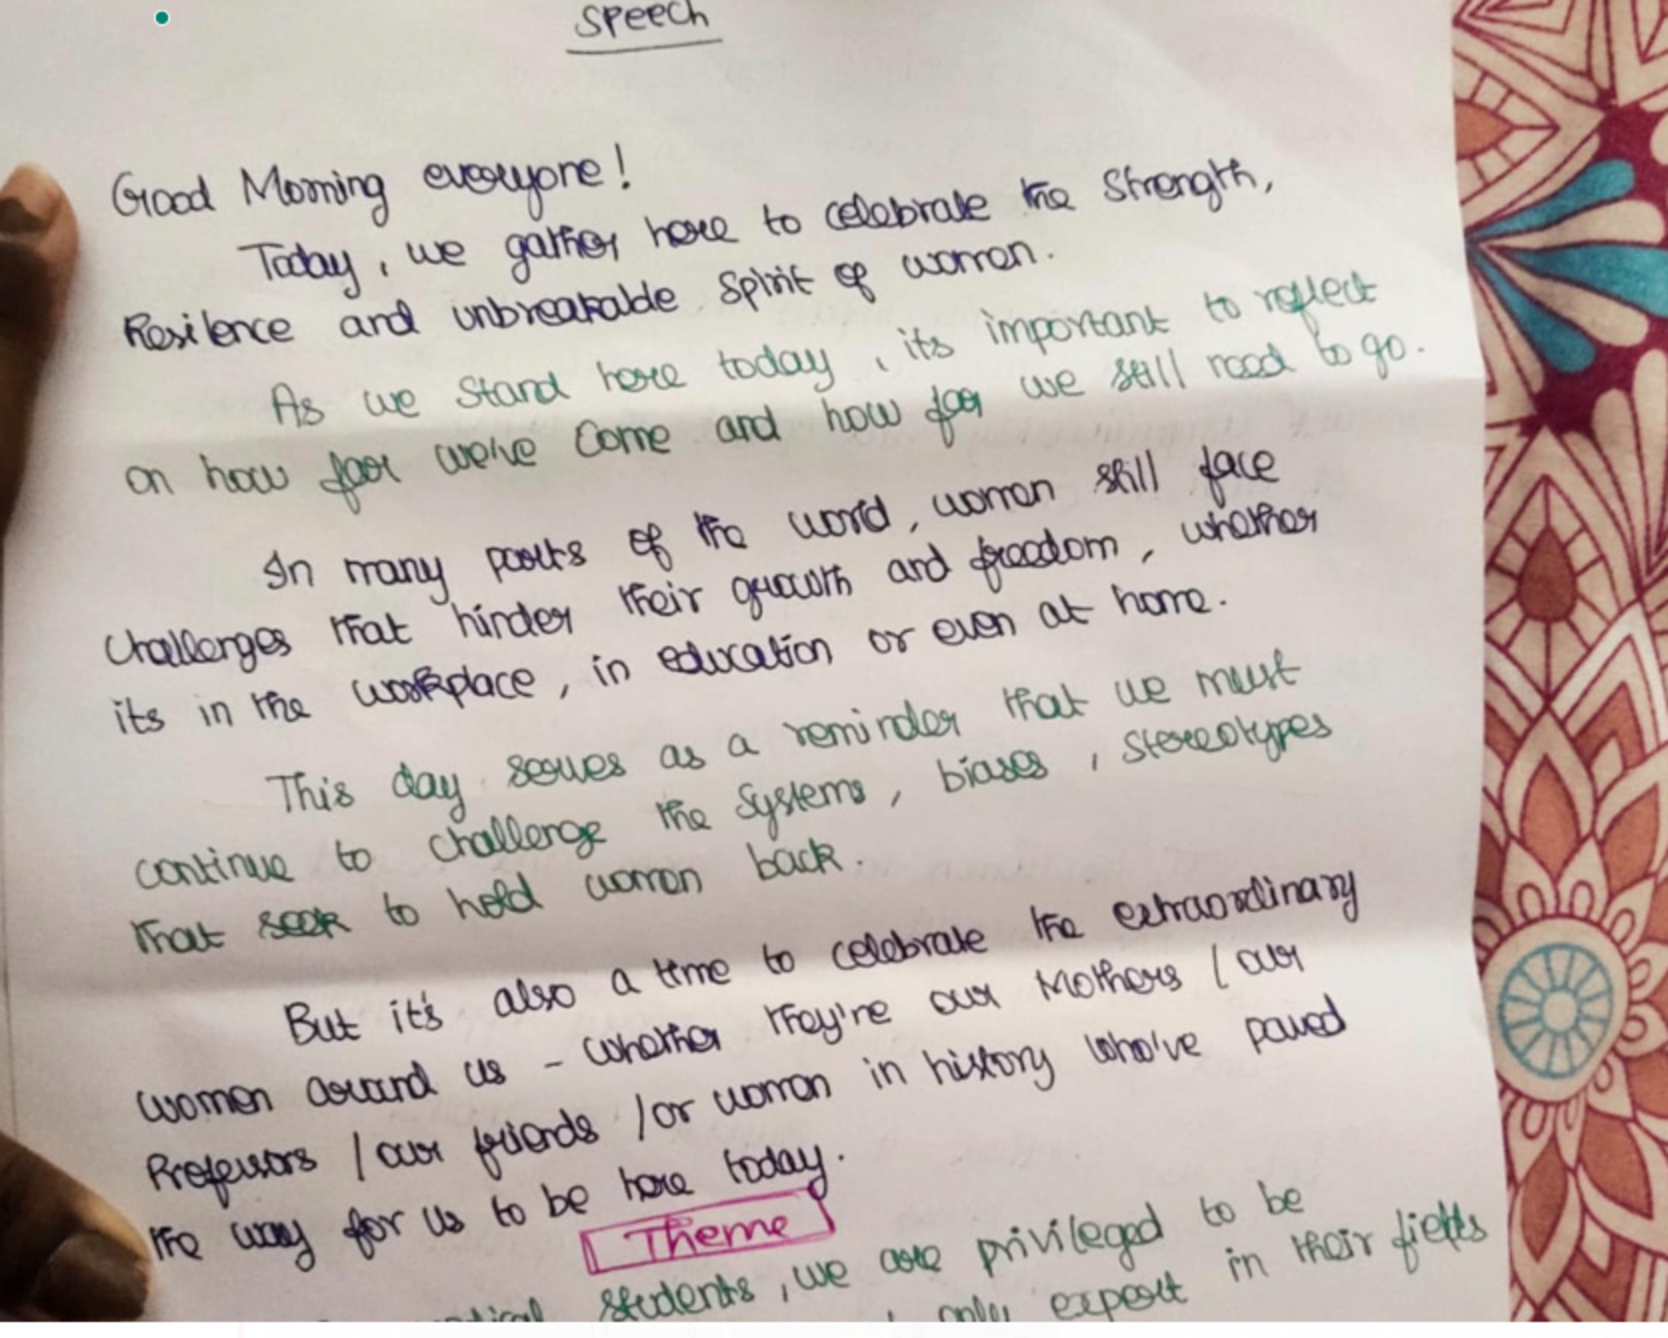 Speech
Good Morning everyone!
Today, we gather here to celebrate the Strength,
Resilence and unbreakable Spirit of women.
As we Stand here today, its important to reflect
on how far we've Come and how far we still need to go.
In many parts of the world, women still face
Challenges that hinder their growth and freedom, whether
its in the workplace, in education or even at home.
This day serves as a reminder that we must
continue to challenge the Systems, biases, stereotypes
that seek to hold women back.
But it's also a time to celebrate the extraordinary
women around us - whether they're our Mothers / our
Professors / our friends / or women in history who've paved
the way for us to be here today.
Theme
students, we are privileged to be
only expert in their fields